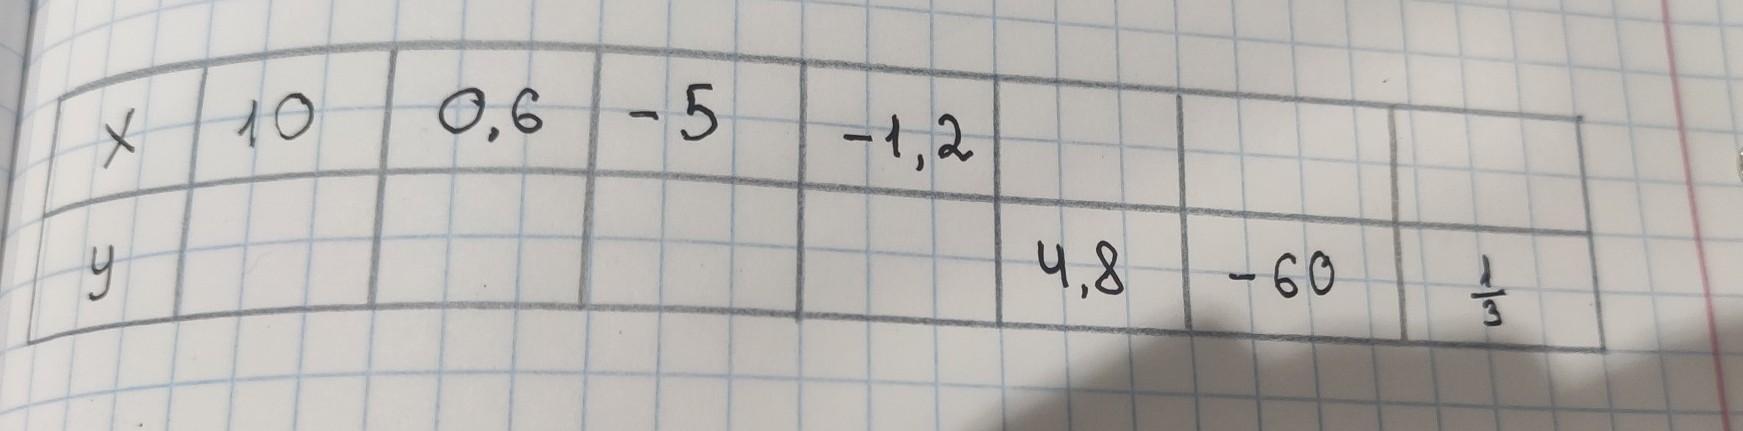 x 10 0,6 -5 -1,2
y 4,8 -60 1/3